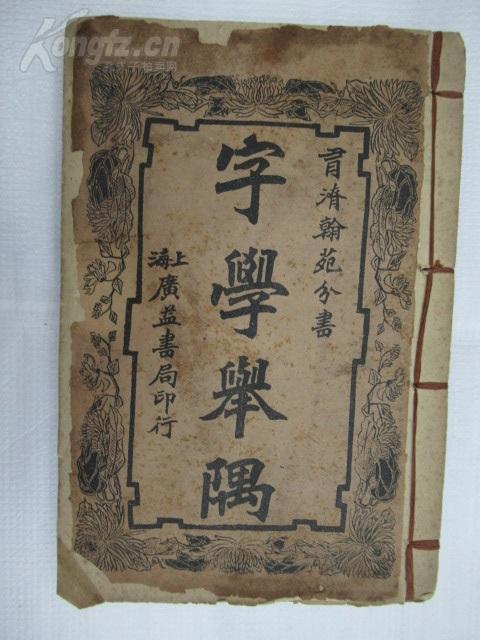 Kongfz.cn
孔夫子拍卖网
濟翰苑分書
字學舉隅
上海廣益書局印行